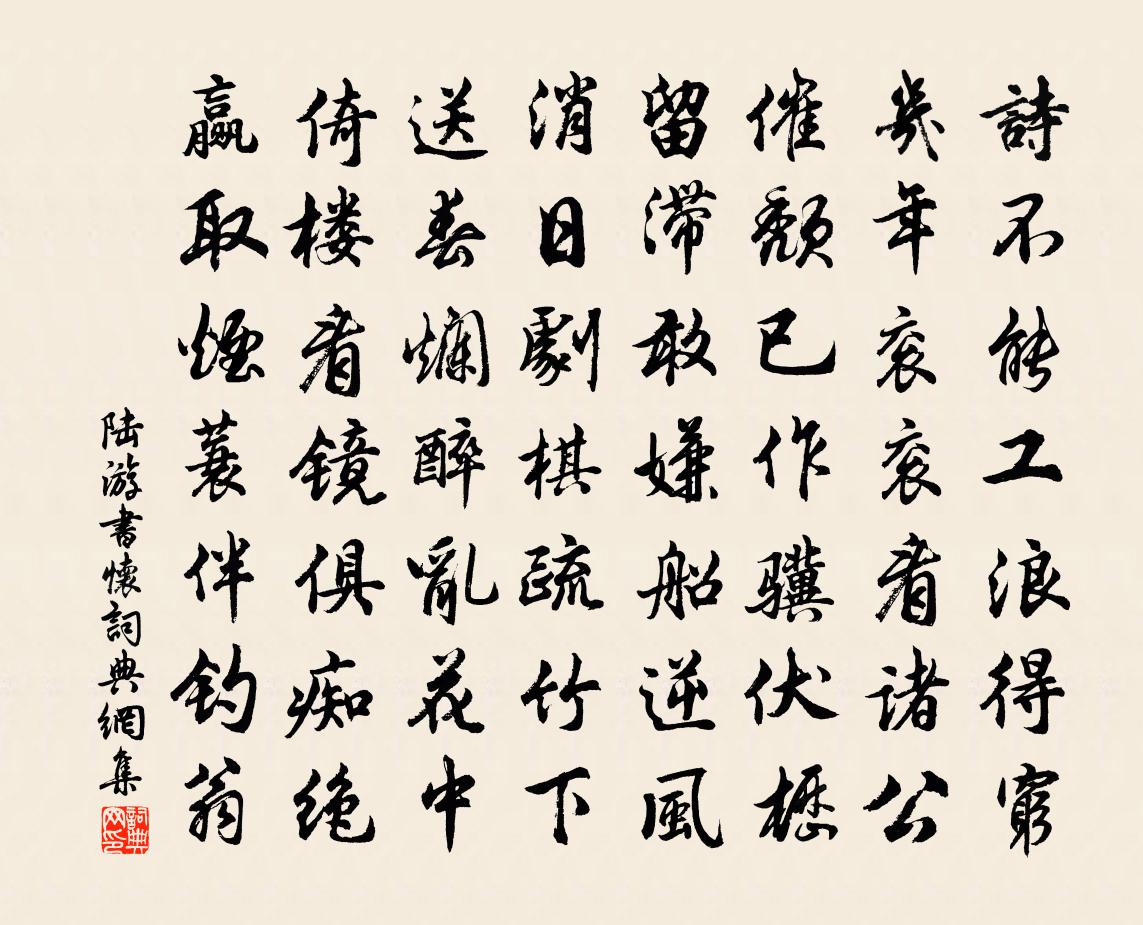 詩不能工浪得窮
幾年衮衮看诸公
催頹已作驥伏櫪
留滯敢嫌船逆風
消日劇棋疏竹下
送春爛醉亂花中
倚楼看镜俱痴绝
贏取煙蓑伴钓翁
陆游書懷詞典網集
詞典网印